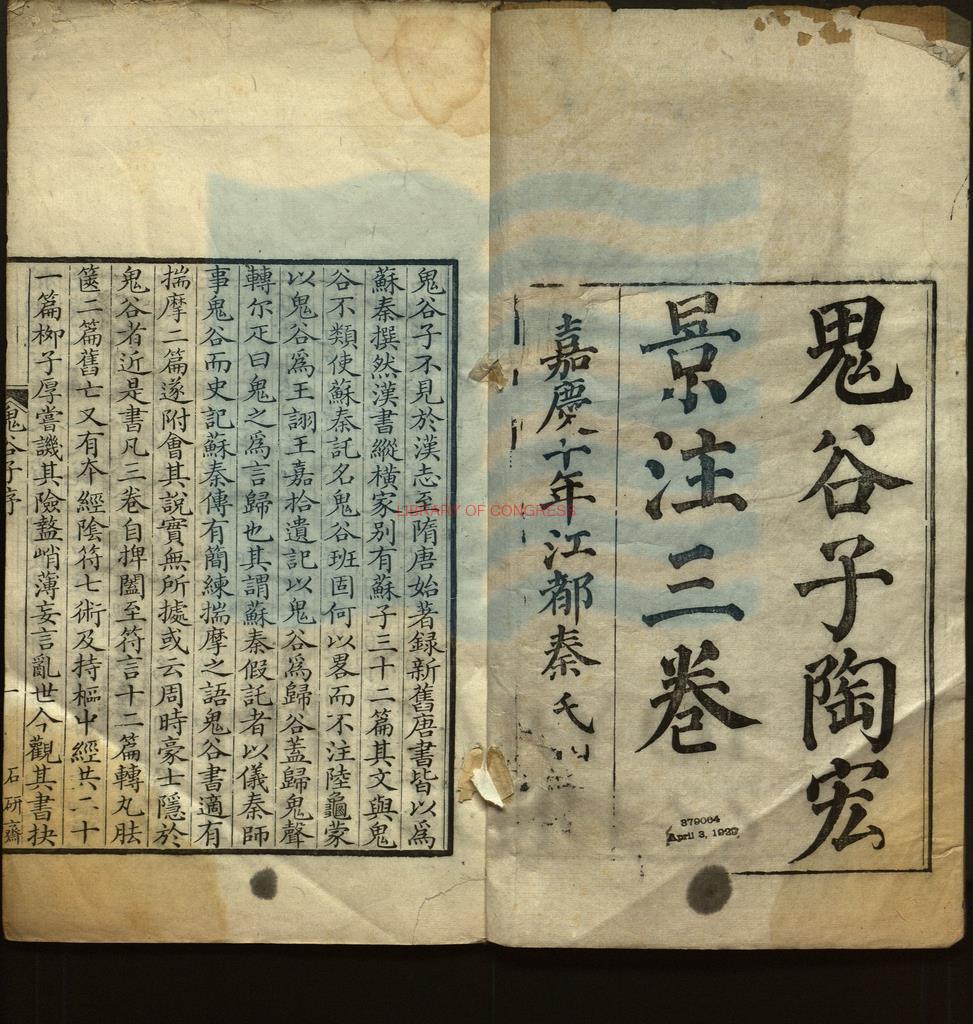 鬼谷子陶宏
景注三卷
嘉慶十年江都秦氏
379064
April 3, 1929
LIBRARY OF CONGRESS
鬼谷子不見於漢志至隋唐始著録新舊唐書皆以爲
蘇秦撰然漢書縱橫家别有蘇子三十二篇其文與鬼
谷不類使蘇秦託名鬼谷班固何以畧而不注陸龜蒙
以鬼谷爲王詡王嘉拾遺記以鬼谷爲歸谷蓋歸鬼聲
轉尔疋曰鬼之爲言歸也其謂蘇秦假託者以儀秦師
事鬼谷而史記蘇秦傳有簡練揣摩之語鬼谷書適有
揣摩二篇遂附會其說實無所據或云周時豪士隱於
鬼谷者近是書凡三卷自捭闔至符言十二篇轉丸胠
篋二篇舊亡又有夲經陰符七術及持樞中經共二十
一篇栁子厚嘗譏其險盭峭薄妄言亂世今觀其書抉
鬼谷子序
一
石研齋